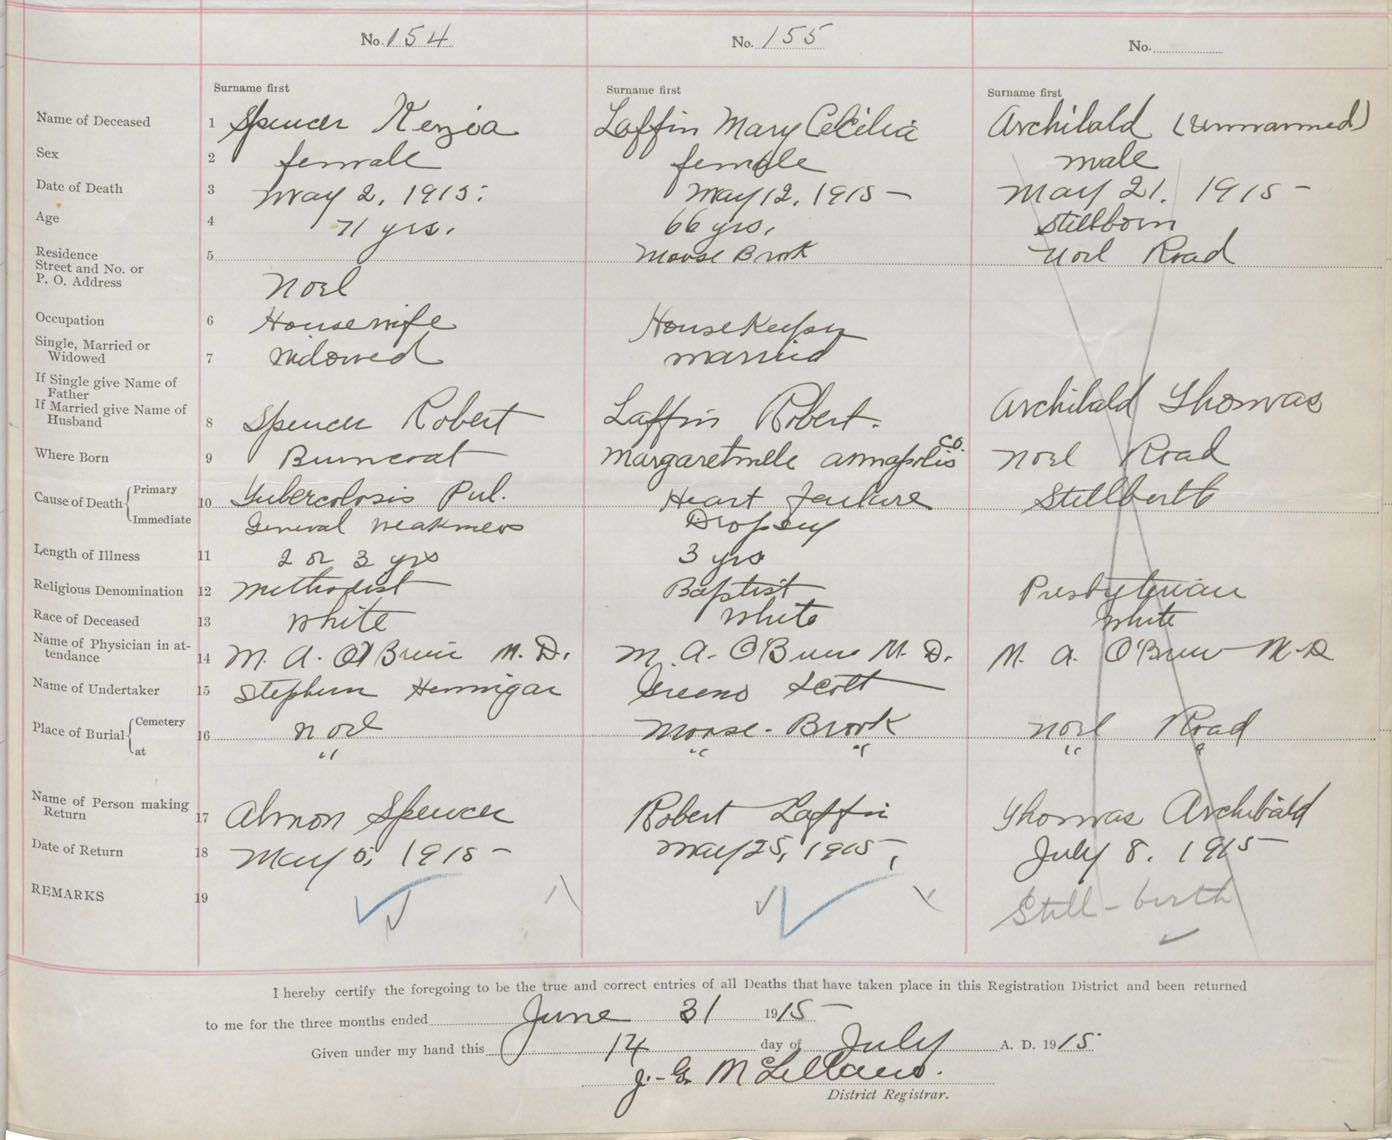 No. 154 No. 155 No.
Surname first Surname first Surname first
Name of Deceased 1 Spencer Kezia Laffin Mary Cecilia Archibald (Unnamed)
Sex 2 female female male
Date of Death 3 May 2, 1915. May 12, 1915 - May 21. 1915 -
Age 4 71 yrs. 66 yrs. Stillborn
Residence 5 Moose Brook Noel Road
Street and No. or
P. O. Address Noel
Occupation 6 Housewife Housekeeper
Single, Married or
Widowed 7 Widowed Married
If Single give Name of
Father
If Married give Name of
Husband 8 Spencer Robert Laffin Robert. Archibald Thomas
Where Born 9 Burncoat Margaretville Annapolis Co. Noel Road
Cause of Death Primary 10 Tuberculosis Pul. Heart Failure Stillbirth
Immediate General Weakness Dropsy
Length of Illness 11 2 or 3 yrs 3 yrs
Religious Denomination 12 Methodist Baptist Presbyterian
Race of Deceased 13 White White White
Name of Physician in at-
tendance 14 M. A. O'Brien M. D. M. A. O'Brien M. D. M. A. O'Brien M-D
Name of Undertaker 15 Stephen Hennigar Greeno Scott
Place of Burial Cemetery 16 Noel Moose - Brook Noel Road
at " " " " "
Name of Person making
Return 17 Almon Spencer Robert Laffin Thomas Archibald
Date of Return 18 May 5, 1915 - May 25, 1915, July 8. 1915
REMARKS 19 Still - birth
I hereby certify the foregoing to be the true and correct entries of all Deaths that have taken place in this Registration District and been returned
to me for the three months ended June 31 1915 -
Given under my hand this 14 day of July A. D. 1915
J. G. McLellan.
District Registrar.